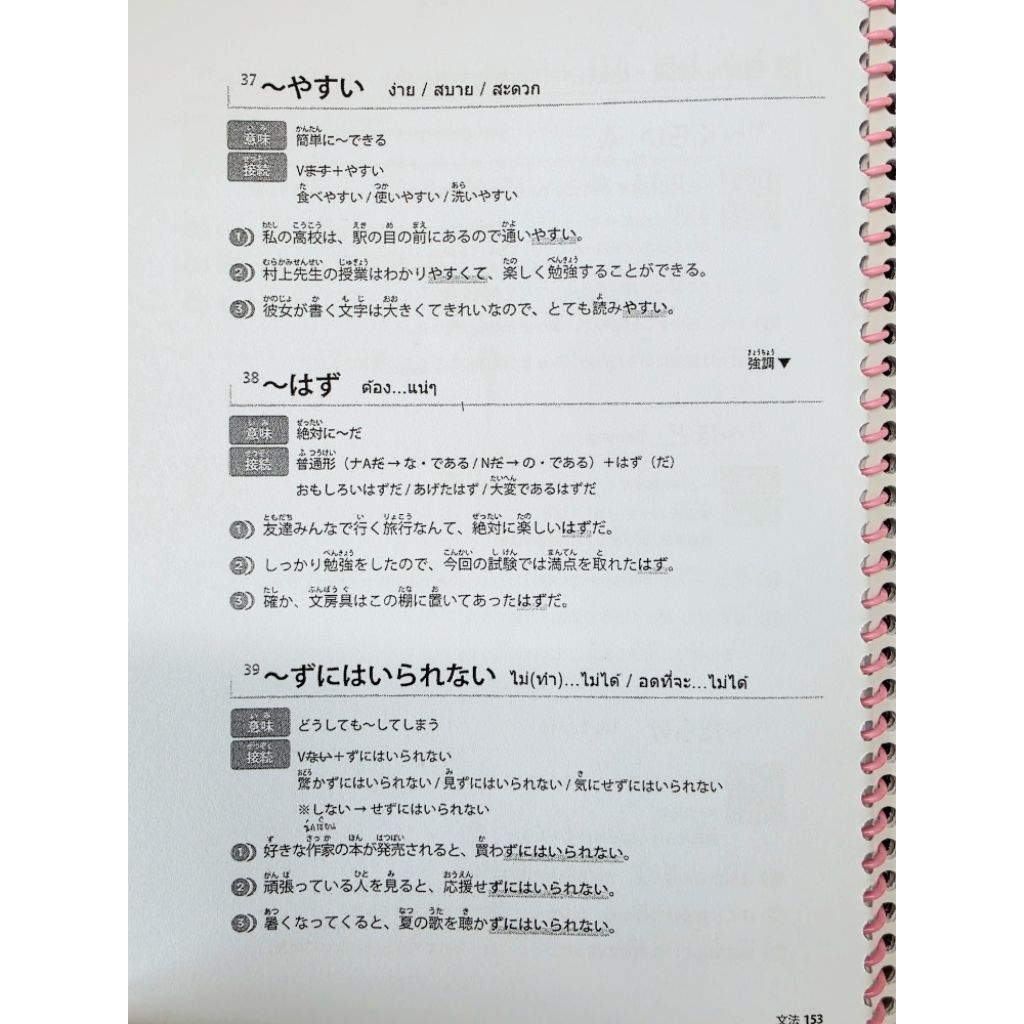 37 ～やすい ง่าย / สบาย / สะดวก
意味 簡単に～できる
接続 Vます＋やすい
食べやすい / 使いやすい / 洗いやすい
① 私の高校は、駅の目の前にあるので通いやすい。
② 村上先生の授業はわかりやすくて、楽しく勉強することができる。
③ 彼女が書く文字は大きくてきれいなので、とても読みやすい。
強調▼
38 ～はず ต้อง...แน่ๆ
意味 絶対に～だ
接続 普通形（ナAだ→な・である / Nだ→の・である）＋はず（だ）
おもしろいはずだ / あげたはず / 大変であるはずだ
① 友達みんなで行く旅行なんて、絶対に楽しいはずだ。
② しっかり勉強をしたので、今回の試験では満点を取れたはず。
③ 確か、文房具はこの棚に置いてあったはずだ。
39 ～ずにはいられない ไม่(ทำ)...ไม่ได้ / อดที่จะ...ไม่ได้
意味 どうしても～してしまう
接続 Vない＋ずにはいられない
驚かずにはいられない / 見ずにはいられない / 気にせずにはいられない
※しない→せずにはいられない
นักเขียน
① 好きな作家の本が発売されると、買わずにはいられない。
② 頑張っている人を見ると、応援せずにはいられない。
③ 暑くなってくると、夏の歌を聴かずにはいられない。
文法 153